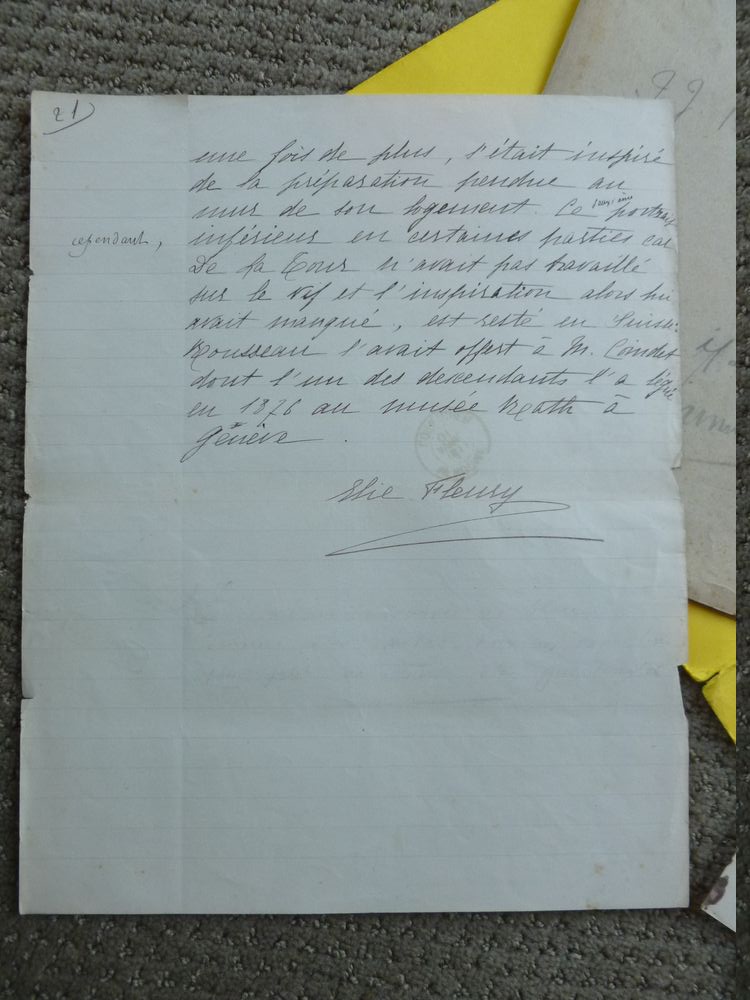 21
une fois de plus, s'était inspiré
de la préparation pendue au
mur de son logement. Ce portrait
cependant,
inférieur en certaines parties car
De la Tour n'avait pas travaillé
sur le vif et l'inspiration alors lui
avait manqué, est resté en Suisse.
Rousseau l'avait offert à M. Coindet
dont l'un des descendants l'a légué
en 1876 au musée Rath à
Genève.
Elie Fleury